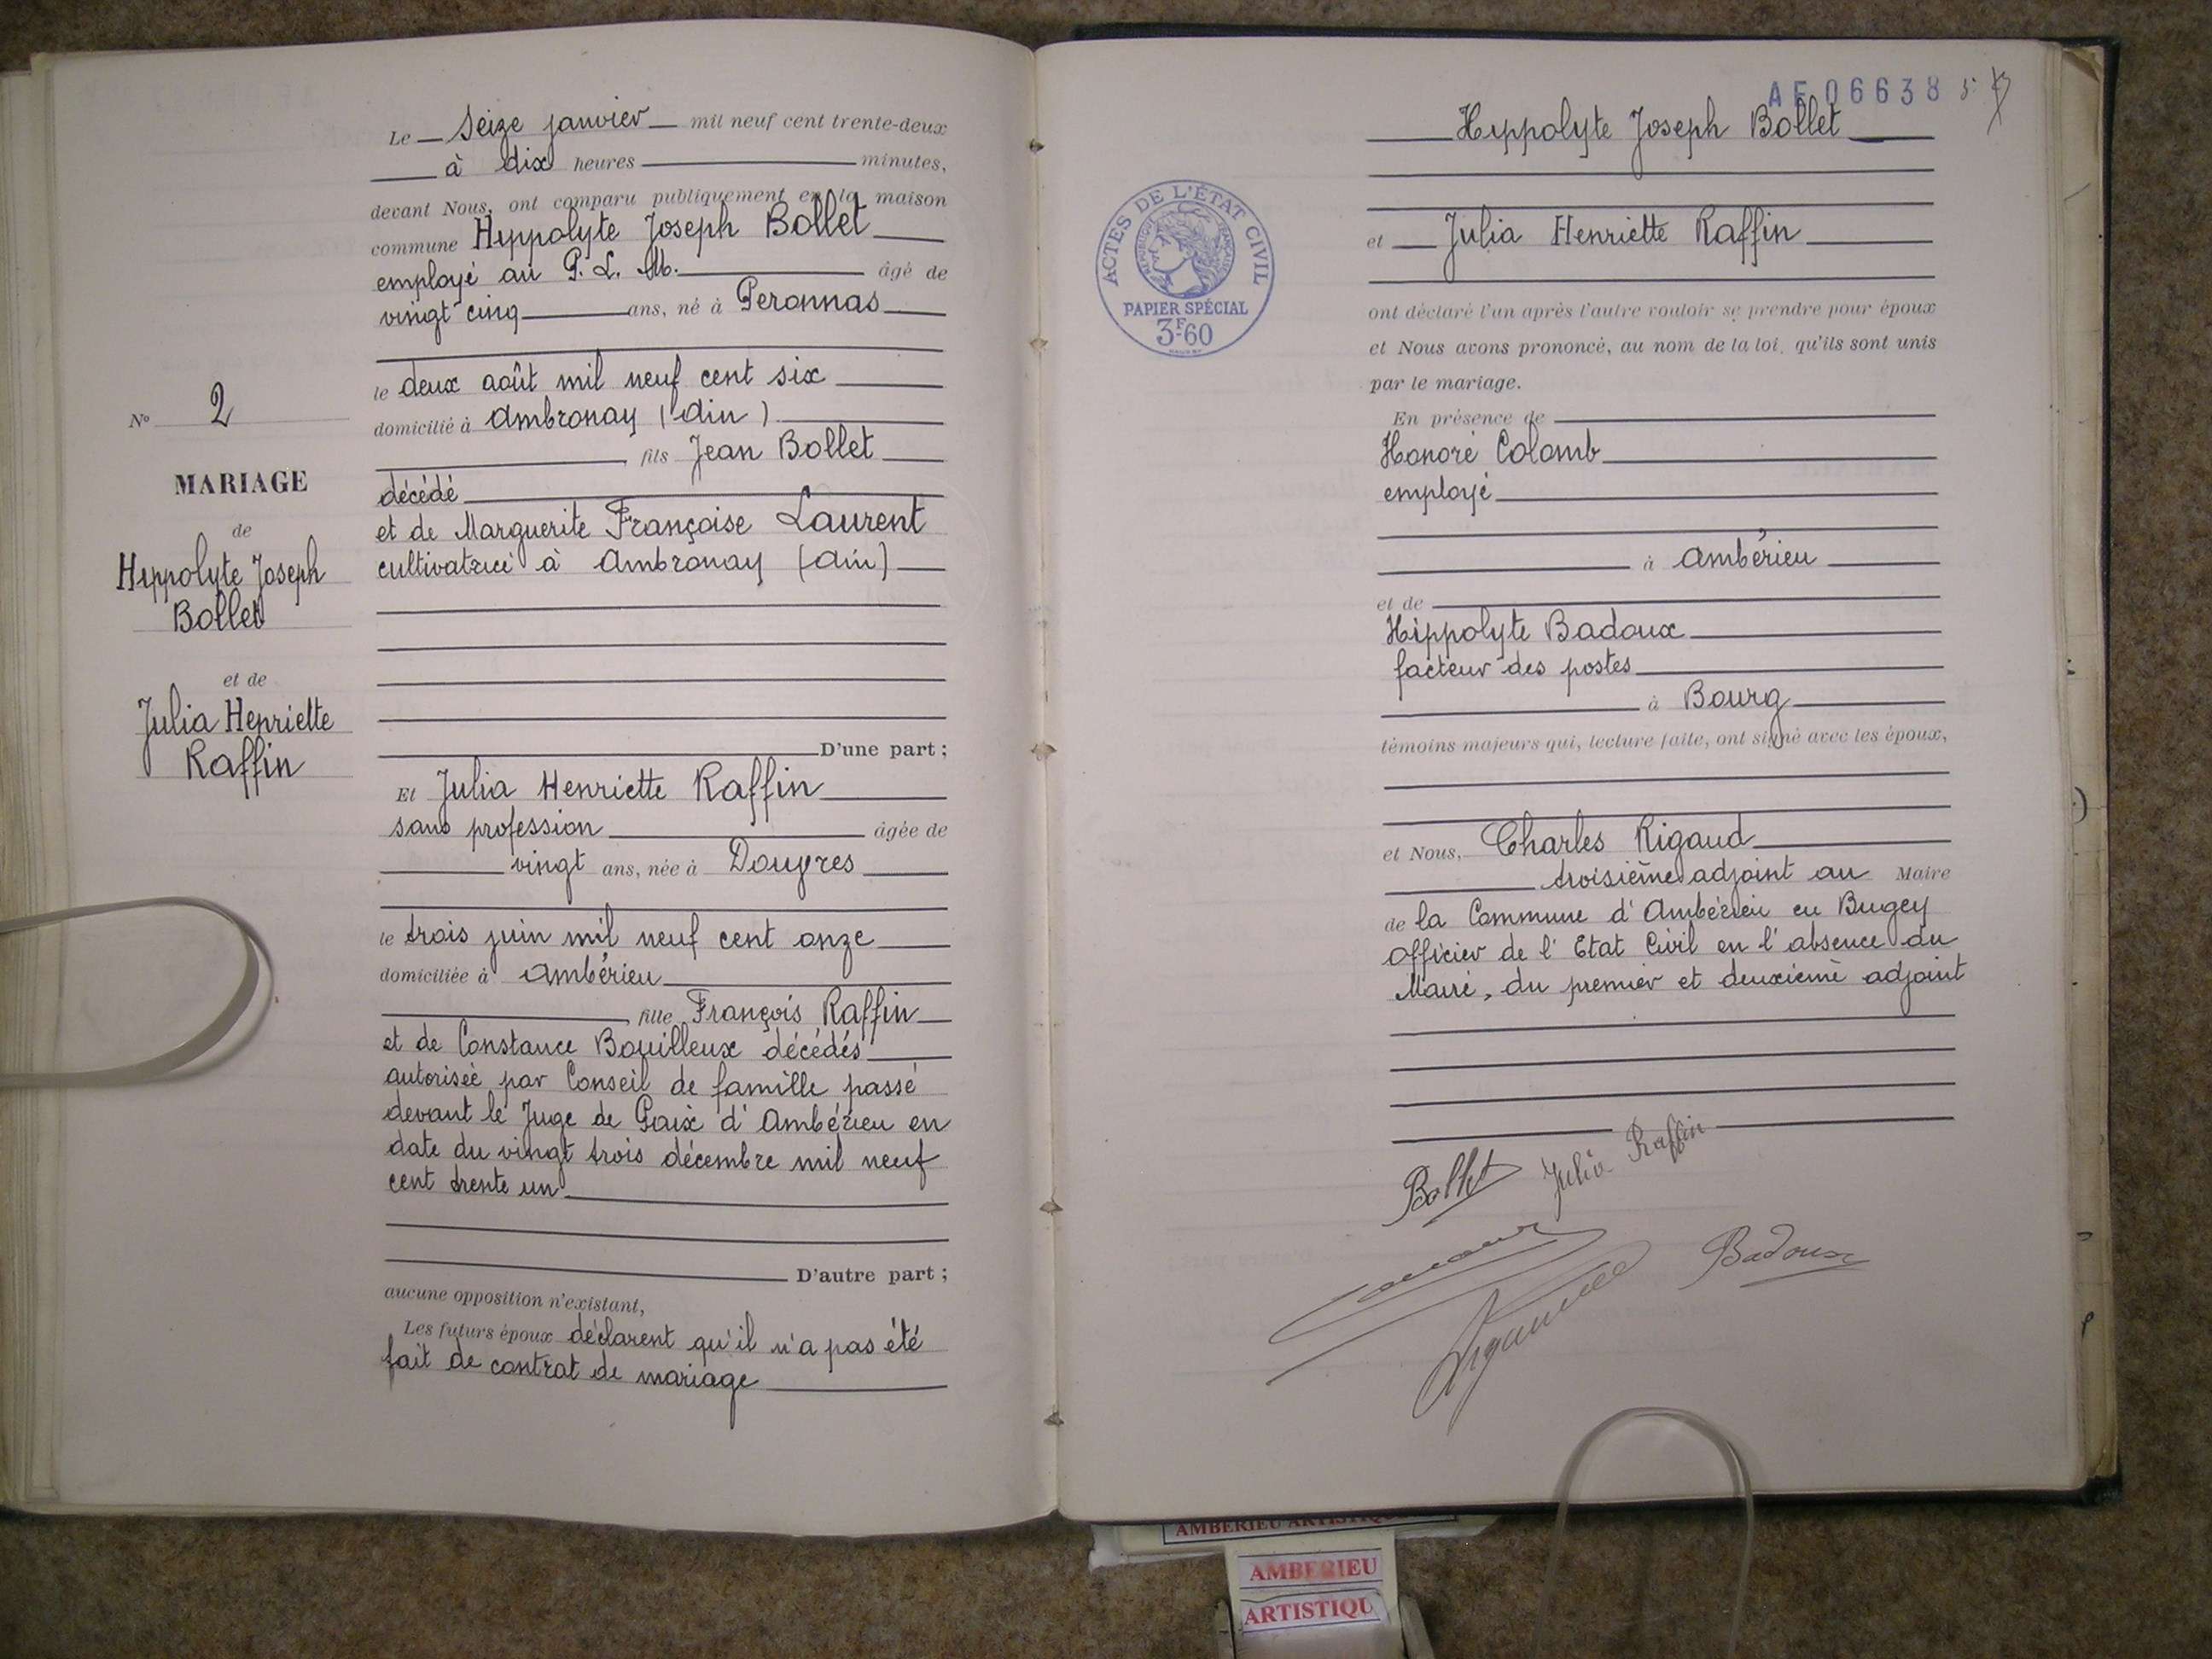 Le seize janvier mil neuf cent trente-deux
à dix heures minutes,
devant Nous, ont comparu publiquement en la maison
commune Hyppolyte Joseph Bollet
employé au P. L. M. âgé de
vingt cinq ans, né à Peronnas
le deux août mil neuf cent six
domicilié à Ambronay (Ain)
, fils Jean Bollet
décédé
et de Marguerite Françoise Laurent
cultivatrice à Ambronay (Ain)
D'une part ;
Et Julia Henriette Raffin
sans profession âgée de
vingt ans, née à Douvres
le trois juin mil neuf cent onze
domiciliée à Ambérieu
, fille François Raffin
et de Constance Bouilleux décédés
autorisée par Conseil de famille passé
devant le Juge de Paix d'Ambérieu en
date du vingt trois décembre mil neuf
cent trente un
D'autre part ;
aucune opposition n'existant,
Les futurs époux déclarent qu'il n'a pas été
fait de contrat de mariage
No 2
MARIAGE
de
Hyppolyte Joseph
Bollet
et de
Julia Henriette
Raffin
AF 06638
Hyppolyte Joseph Bollet
et Julia Henriette Raffin
ACTES DE L'ÉTAT CIVIL
RÉPUBLIQUE FRANÇAISE
PAPIER SPÉCIAL
3F60
ont déclaré l'un après l'autre vouloir se prendre pour époux
et Nous avons prononcé, au nom de la loi, qu'ils sont unis
par le mariage.
En présence de
Honoré Colomb
employé
à Ambérieu
et de
Hippolyte Badoux
facteur des postes
à Bourg
témoins majeurs qui, lecture faite, ont signé avec les époux,
et Nous, Charles Rigaud
troisième adjoint au Maire
de la Commune d'Ambérieu en Bugey
Officier de l'Etat Civil en l'absence du
Maire, du premier et deuxième adjoint
Bollet Julia Raffin
Badoux
Rigaud
AMBERIEU ARTISTIQUE
AMBERIEU
ARTISTIQU